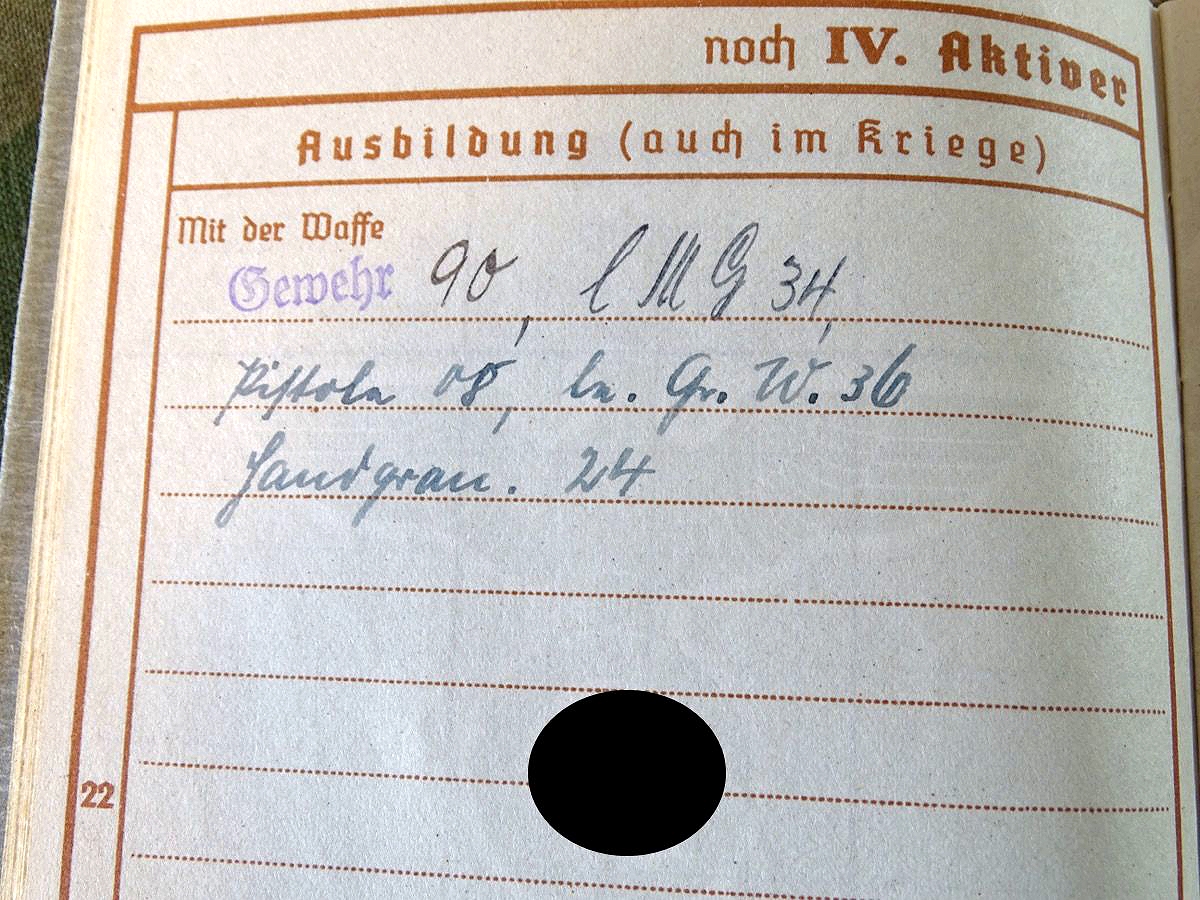 noch IV. Aktiver
Ausbildung (auch im Kriege)
Mit der Waffe
Gewehr 98, l MG 34,
Pistole 08, le. Gr. W. 36
Handgran. 24
22